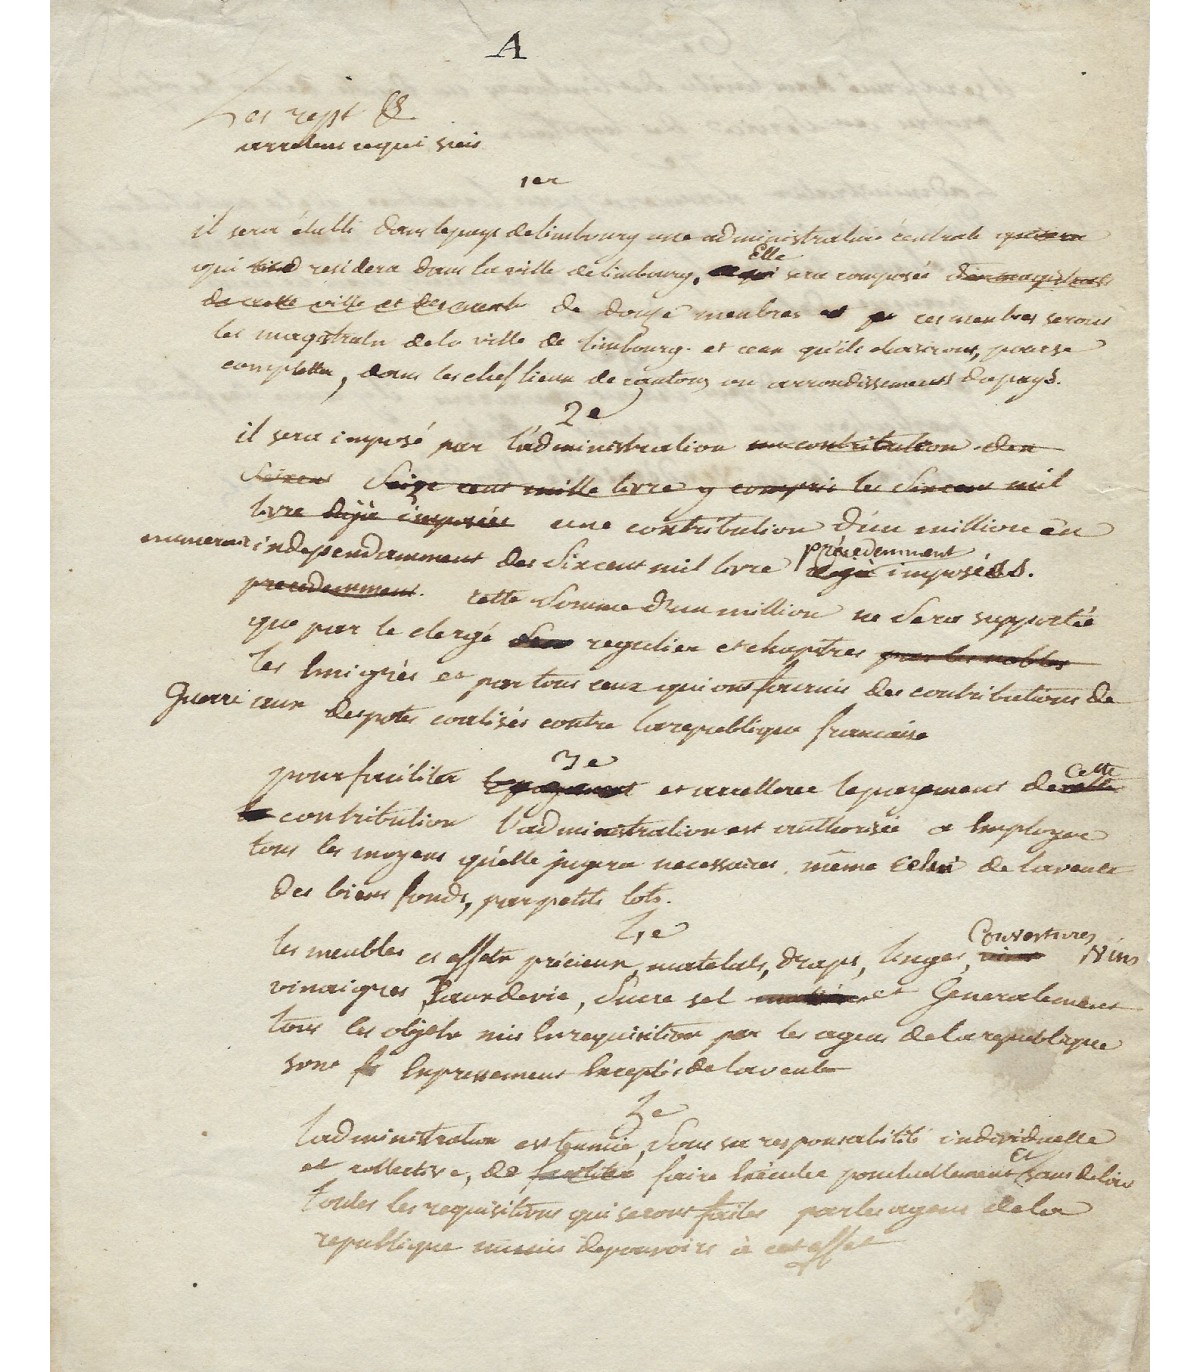 A
Les repst &
arretent ce qui suis
1er
il sera établi dans le pays de limbourg une administration centrale
qui residera dans la ville de limbourg. Elle sera composée des magistrats
de cette ville et de de douze membres et ces membres serons
les magistrats de la ville de limbourg. et ceux qu'ils choisirons, pour se
completter, dans les chef lieux de cantons ou arrondissements du pays.
2e
il sera imposé par l'administration une contribution de
Seize cent mille livre y compris les Six cent mil
livre déjà imposées une contribution d'un million en
numeraire independamment des Six cent mil livre précédemment déjà imposéés.
precedemment. cette Somme d'un million ne Sera supportée
que par le clergé regulier et chapitres par les nobles
les Emigrés et par tous ceux qui ont fournis des contributions de
Guerre aux despotes coalisés contre la republique francaise
3e
pour faciliter le payement et accellerer le payement de cette
contribution l'administration est authorisée a Employer
tous les moyens qu'elle jugera necessaires. même Celui de la vente
des biens fonds, par petits lots.
4e
les meubles et effets précieux, matelats, draps, linges, Couvertures vins Vins
vinaigres, Eau de vie, Sucre sel et Généralement
tous les objets mis En requisition par les agens de la republique
sont Expressement Exceptés de la vente
5e
l'administration est tennue, Sous sa responsabilité individuelle
et collective, de faire Executer ponctuellement et sans delais
toutes les requisitions qui serons faites par les agens de la
republique munis de pouvoirs à cet effet